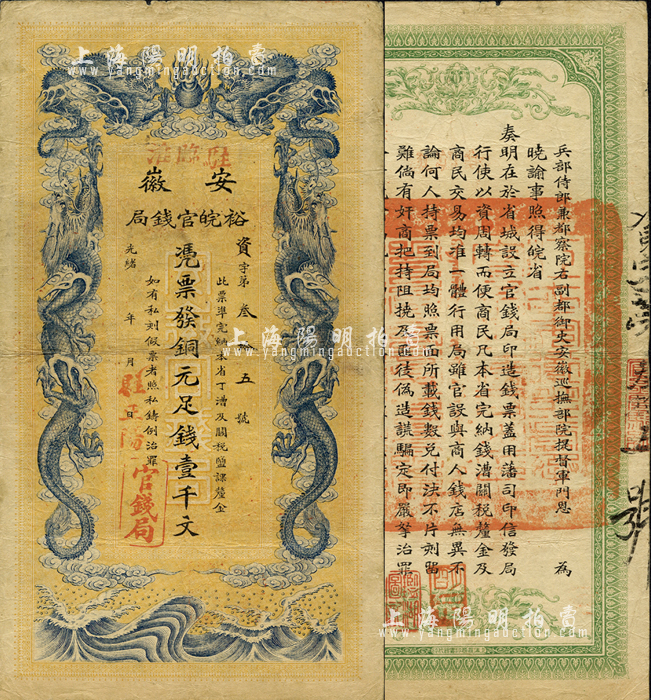 上海陽明拍賣
www.yangmingauction.com
駐臨淮
安徽
裕皖官錢局
資字第叁拾五號
此票準完納本省丁漕及關稅鹽課釐金
憑票發銅元足錢壹千文
如有私刻假票者照私鑄例治罪
光緒 年 月 日
官錢局
兵部侍郎兼都察院右副都御史安徽巡撫部院提督軍門恩 為
曉諭事照得皖省
奏明在於省城設立官錢局印造錢票蓋用藩司印信發局
行使以資周轉而便商民凡本省完納錢漕關稅釐金及
商民交易均准一體行用局雖官設與商人錢店無異不
論何人持票到局均照票面所載錢數兌付決不片刻留
難倘有奸商把持阻撓及匪徒偽造謊騙定即嚴拏治罪
上海陽明拍賣
www.yangmingauction.com
上海陽明拍賣
www.yangmingauction.com